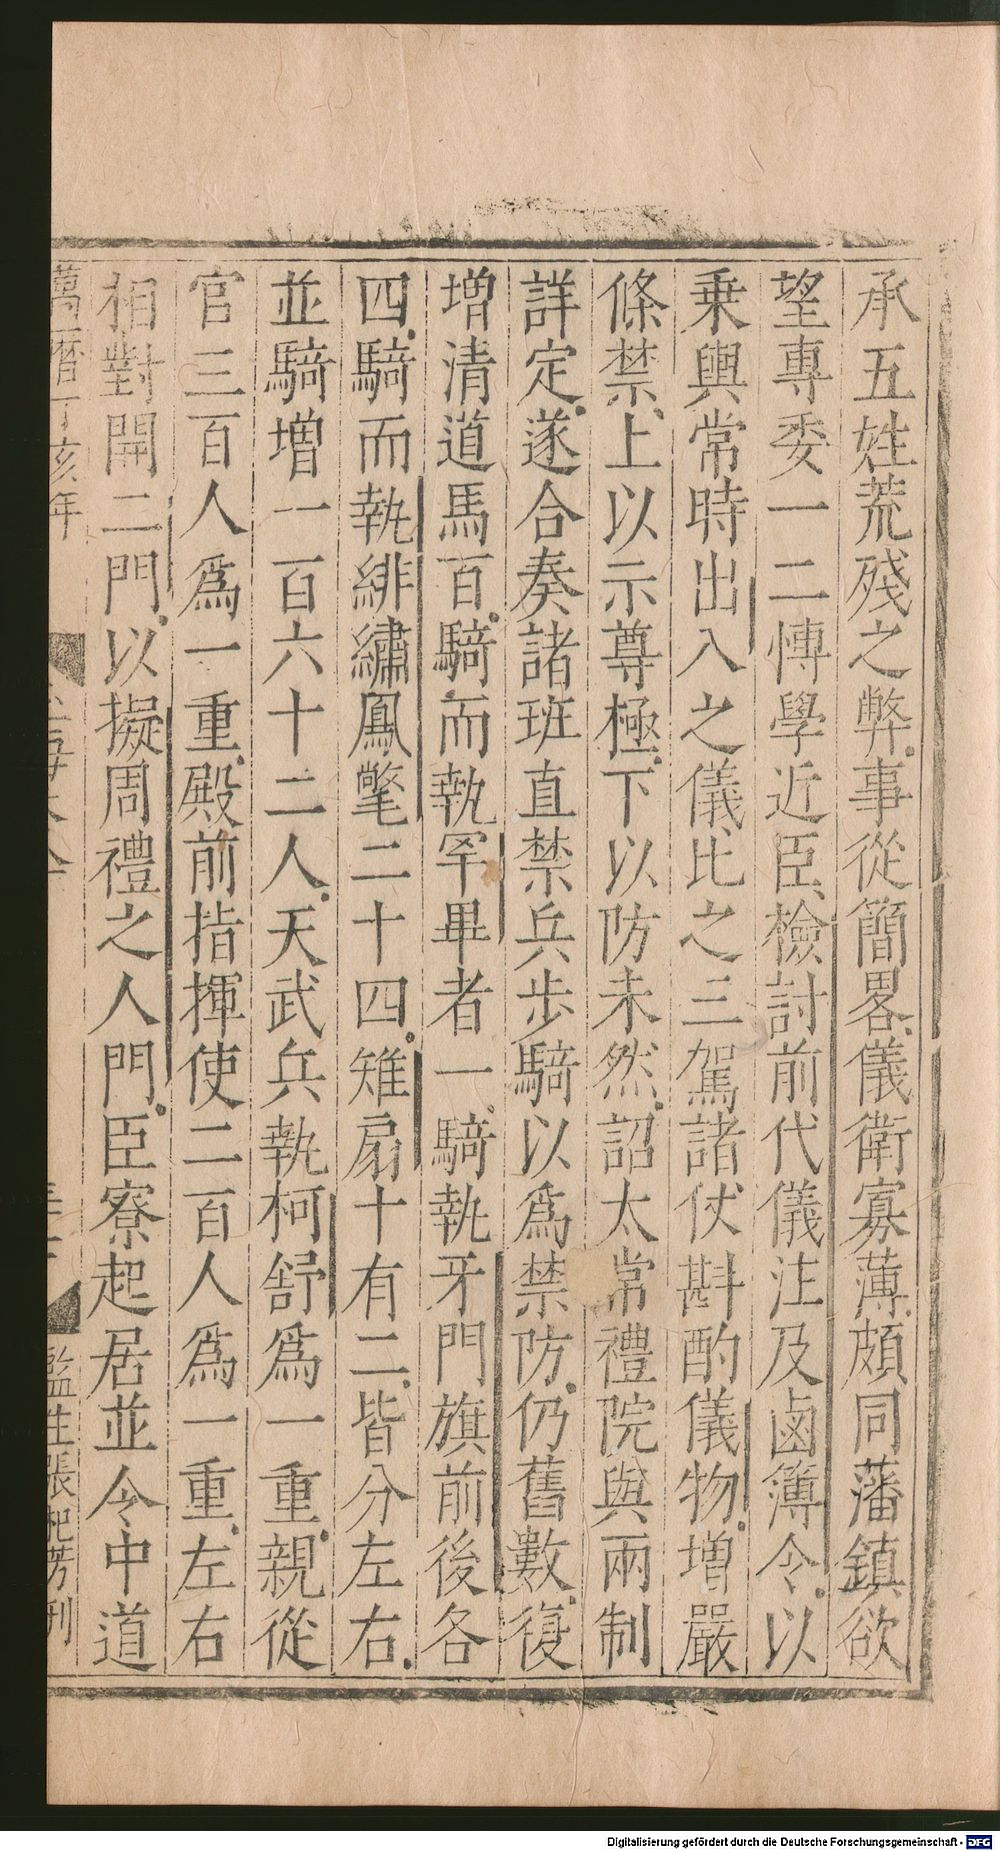 承五姓荒殘之弊事從簡畧儀衛寡薄頗同藩鎮欲
望專委一二愽學近臣檢討前代儀注及鹵簿令以
乗輿常時出入之儀比之三駕諸仗斟酌儀物増嚴
條禁上以示尊極下以防未然詔太常禮院與兩制
詳定遂合奏諸班直禁兵步騎以爲禁防仍舊數復
増清道馬百騎而執罕畢者一騎執牙門旗前後各
四騎而執緋繡鳳氅二十四雉扇十有二皆分左右
並騎増一百六十二人天武兵執柯舒爲一重親從
官三百人爲一重殿前指揮使二百人爲一重左右
相對開二門以擬周禮之人門臣寮起居並令中道
萬曆丁亥年
監生張杞芳刊
Digitalisierung gefördert durch die Deutsche Forschungsgemeinschaft - DFG